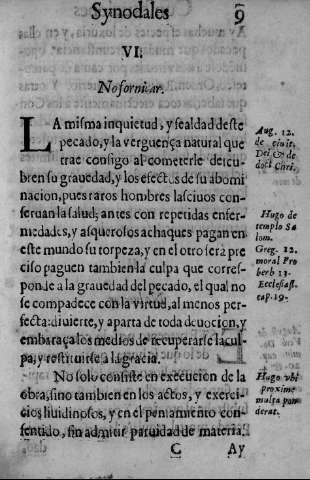 Synodales
9
VI.
No fornicar.
LA misma inquietud, y fealdad deste
pecado, y la verguença natural que
trae consigo al cometerle descu-
bren su grauedad, y los efectos de su abomi
nacion, pues raros hombres lasciuos con-
seruan la salud, antes con repetidas enfer-
medades, y asquerosos achaques pagan en
este mundo su torpeza, y en el otro será pre
ciso paguen tambien la culpa que corres-
ponde a la grauedad del pecado, el qual no
se compadece con la virtud, al menos per-
fecta: diuierte, y aparta de toda deuocion, y
embaraça los medios de recuperarse la cul-
pa, y restituirse a la gracia.
No solo consiste en execucion de la
obra, sino tambien en los actos, y exerci-
cios libidinosos, y en el pensamiento con-
sentido, sin admitir paruidad de materia.
C Ay
Aug. 12.
de ciuit.
Dei & de
doct Chri.
Hugo de
templo Sa
lom.
Greg. 12.
moral Pro
berb 13.
Ecclesiast.
cap. 19.
Hugo vbi
proxime
multa pon
derat.